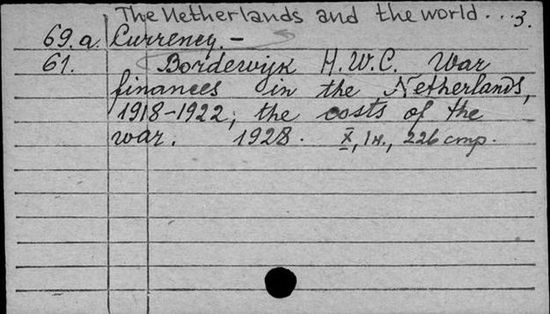 The Netherlands and the world...3.
69.a. Currency.-
61. Bordewijk H.W.C. War
finances in the Netherlands,
1918-1922; the costs of the
war. 1928. X, 1н., 226 стр.